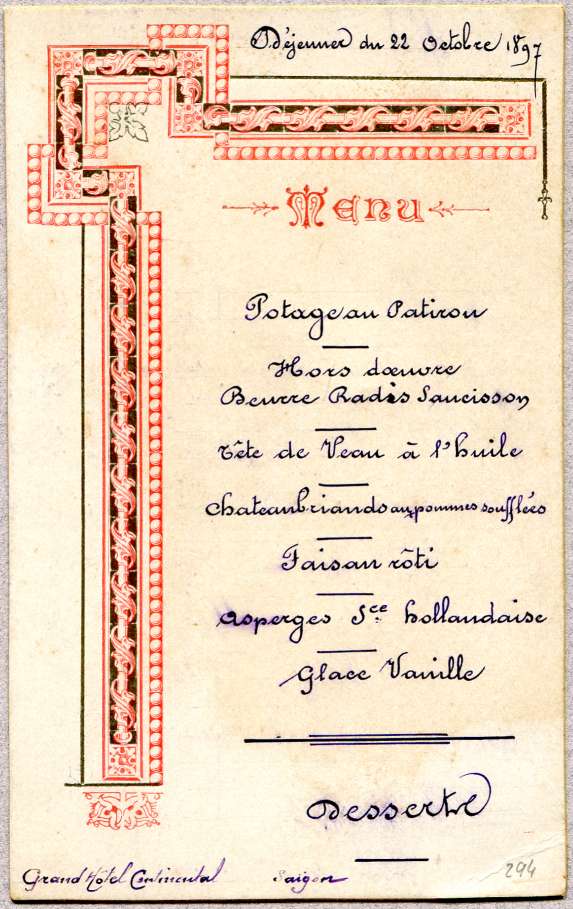 Déjeuner du 22 Octobre 1897
Menu
Potage au Patiron
Hors d'œuvre
Beurre Radis Saucisson
Tête de Veau à l'huile
Chateaubriands aux pommes soufflées
Faisan rôti
Asperges Sce hollandaise
Glace Vanille
Dessertre
Grand Hôtel Continental Saigon
294